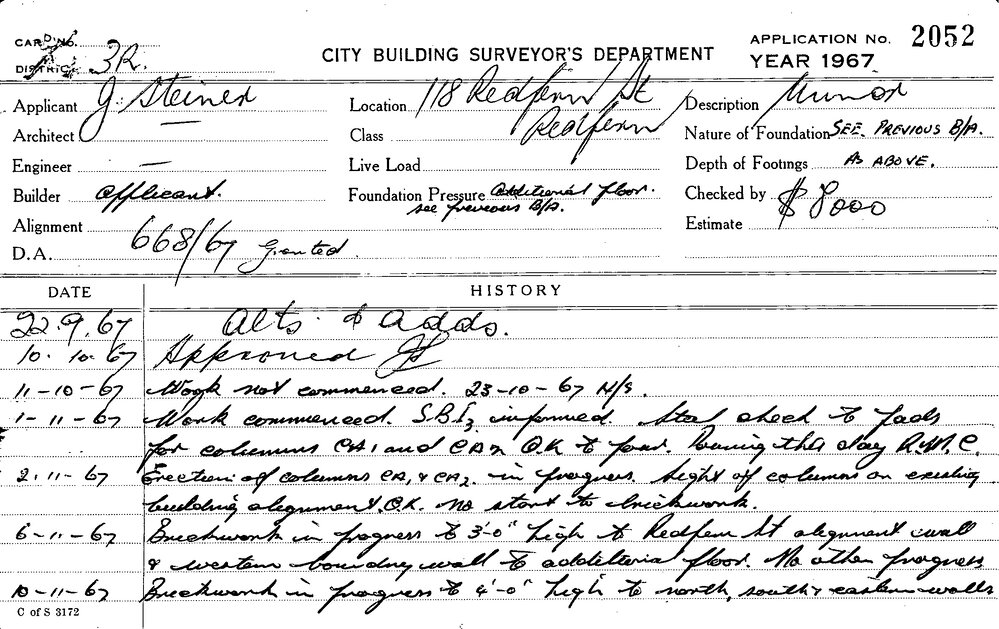 CARD No.
DISTRICT 3R.
CITY BUILDING SURVEYOR'S DEPARTMENT
APPLICATION No. 2052
YEAR 1967
Applicant G. Steiner
Location 118 Redfern St
Redfern
Description Minor
Architect —
Class
Nature of Foundation SEE PREVIOUS B/A.
Engineer —
Live Load
Depth of Footings AS ABOVE.
Builder applicant.
Foundation Pressure additional floor.
see previous B/A.
Checked by
Estimate $8000
Alignment
D.A. 668/67 granted.
DATE HISTORY
22.9.67 Alts. & adds.
10.10.67 Approved
11-10-67 Work not commenced. 23-10-67 N/S.
1-11-67 Work commenced. informed. Steel check to pads
for columns CA1 and CA2 O.K to pour. Pouring this day
2-11-67 Erection of columns CA1 & CA2 in progress. height of columns on existing
building alignment. O.K. no start to brickwork.
6-11-67 Brickwork in progress to 3'-0" high to Redfern St alignment wall
& western boundary wall to additional floor. No other progress
10-11-67 Brickwork in progress to 4'-0" high to north, south & eastern walls
C of S 3172